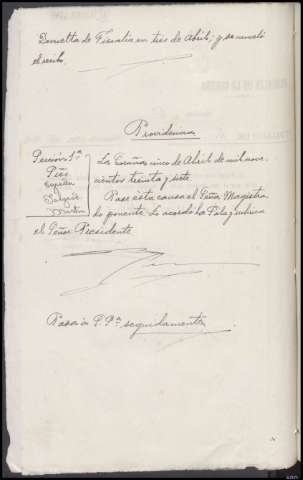 Devuelta de Fiscalia en tres de Abril; y se acusó
el recibo.
Providencia
Sección 1ª
Pino
Salgado
La Coruña cinco de Abril de mil nove-
cientos treinta y siete.
Pase esta causa al Señor Magistra-
do ponente. Lo acordó la Sala y rubrica
el Señor Presidente
Pasa a P. Pª seguidamente